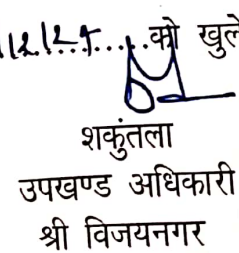 को खुले
शकुंतला
उपखण्ड अधिकारी
श्री विजयनगर